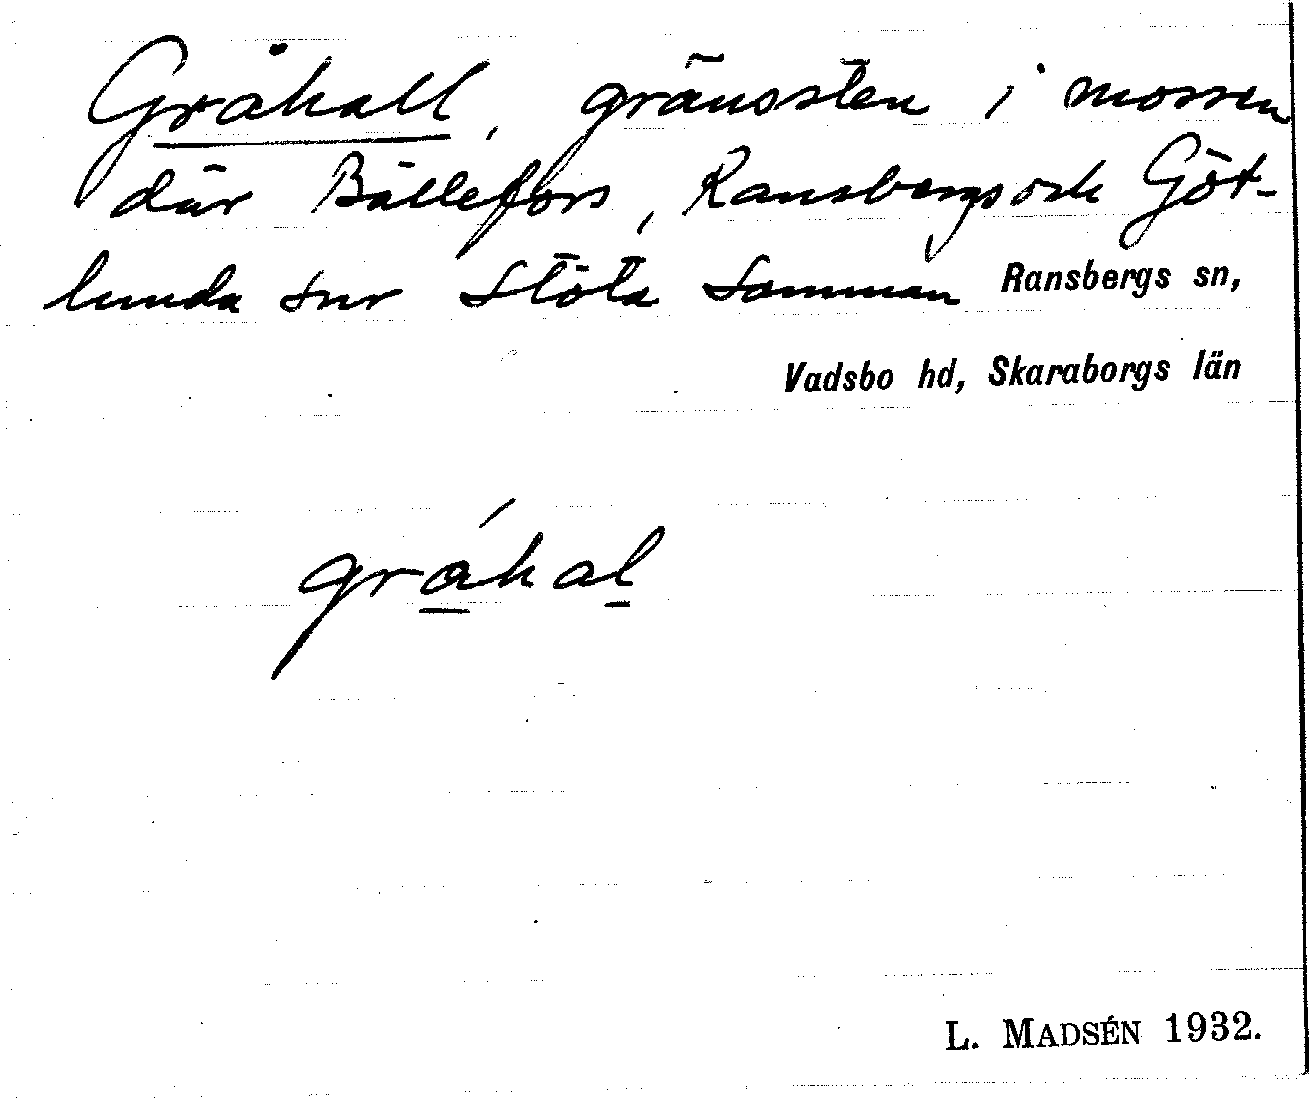 Gråhall, gränssten i mossen
där Bällefors, Ransbergs och Göt-
lunda snr stöta samman Ransbergs sn,
Vadsbo hd, Skaraborgs län
gráhal
L. MADSÉN 1932.